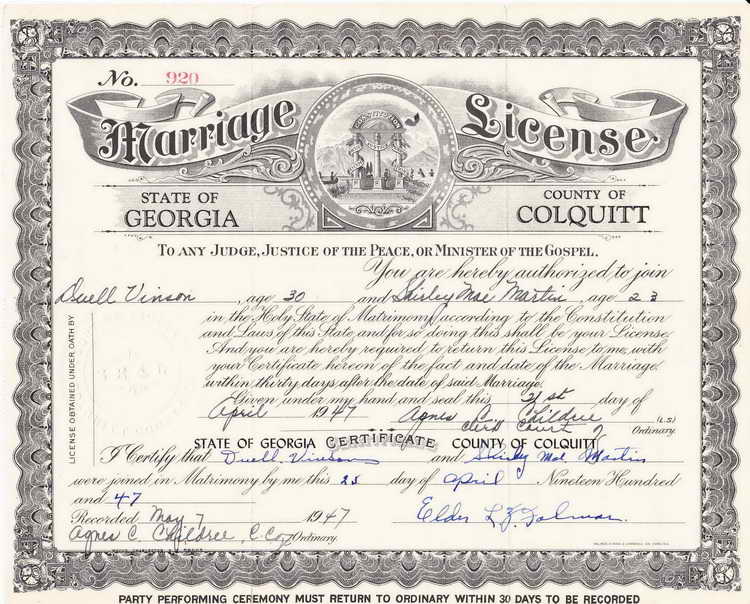 No. 920
Marriage License
CONSTITUTION
STATE OF GEORGIA
COUNTY OF COLQUITT
TO ANY JUDGE, JUSTICE OF THE PEACE, OR MINISTER OF THE GOSPEL.
You are hereby authorized to join
Duell Vinson, age 30 and Shirley Mae Martin age 23
in the Holy State of Matrimony, according to the Constitution
and Laws of this State and for so doing this shall be your License.
And you are hereby required to return this License to me, with
your Certificate hereon of the fact and date of the Marriage
within thirty days after the date of said Marriage.
Given under my hand and seal this 21st day of
April 1947 Agnes C. Childree (L.S.)
Clerk Court Ordinary.
LICENSE OBTAINED UNDER OATH BY
STATE OF GEORGIA CERTIFICATE COUNTY OF COLQUITT
I Certify that Duell Vinson and Shirley Mae Martin
were joined in Matrimony by me this 25 day of April Nineteen Hundred
and 47
Recorded May 7 1947 Elder
Agnes C. Childree, Ordinary.
PARTY PERFORMING CEREMONY MUST RETURN TO ORDINARY WITHIN 30 DAYS TO BE RECORDED